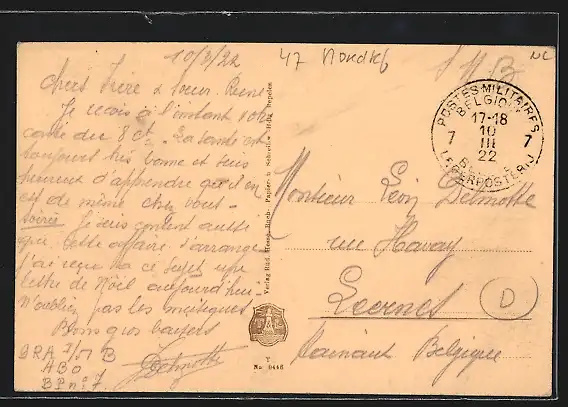 10/3/22
47
S M B
Chers frère & soeur Irène
Je reçois à l'instant votre
carte du 8 ct. La santé est
toujours très bonne et suis
heureux d'apprendre qu'il en
est de même chez vous
Je suis content aussi
que cette affaire s'arrange
j'ai reçu à ce sujet une
lettre de Noël aujourd'hui
N'oubliez pas les musiques
Bons gros baisers
Delmotte
BRA
ABO
BP n: 7
Verlag Rud.
Y
No 9446
POSTES MILITAIRES
BELGIQUE
17-18
10
III
22
7 7
LEGERPOSTERIJ
Monsieur Léon Delmotte
rue Havay
Leernes
D
Hainaut Belgique